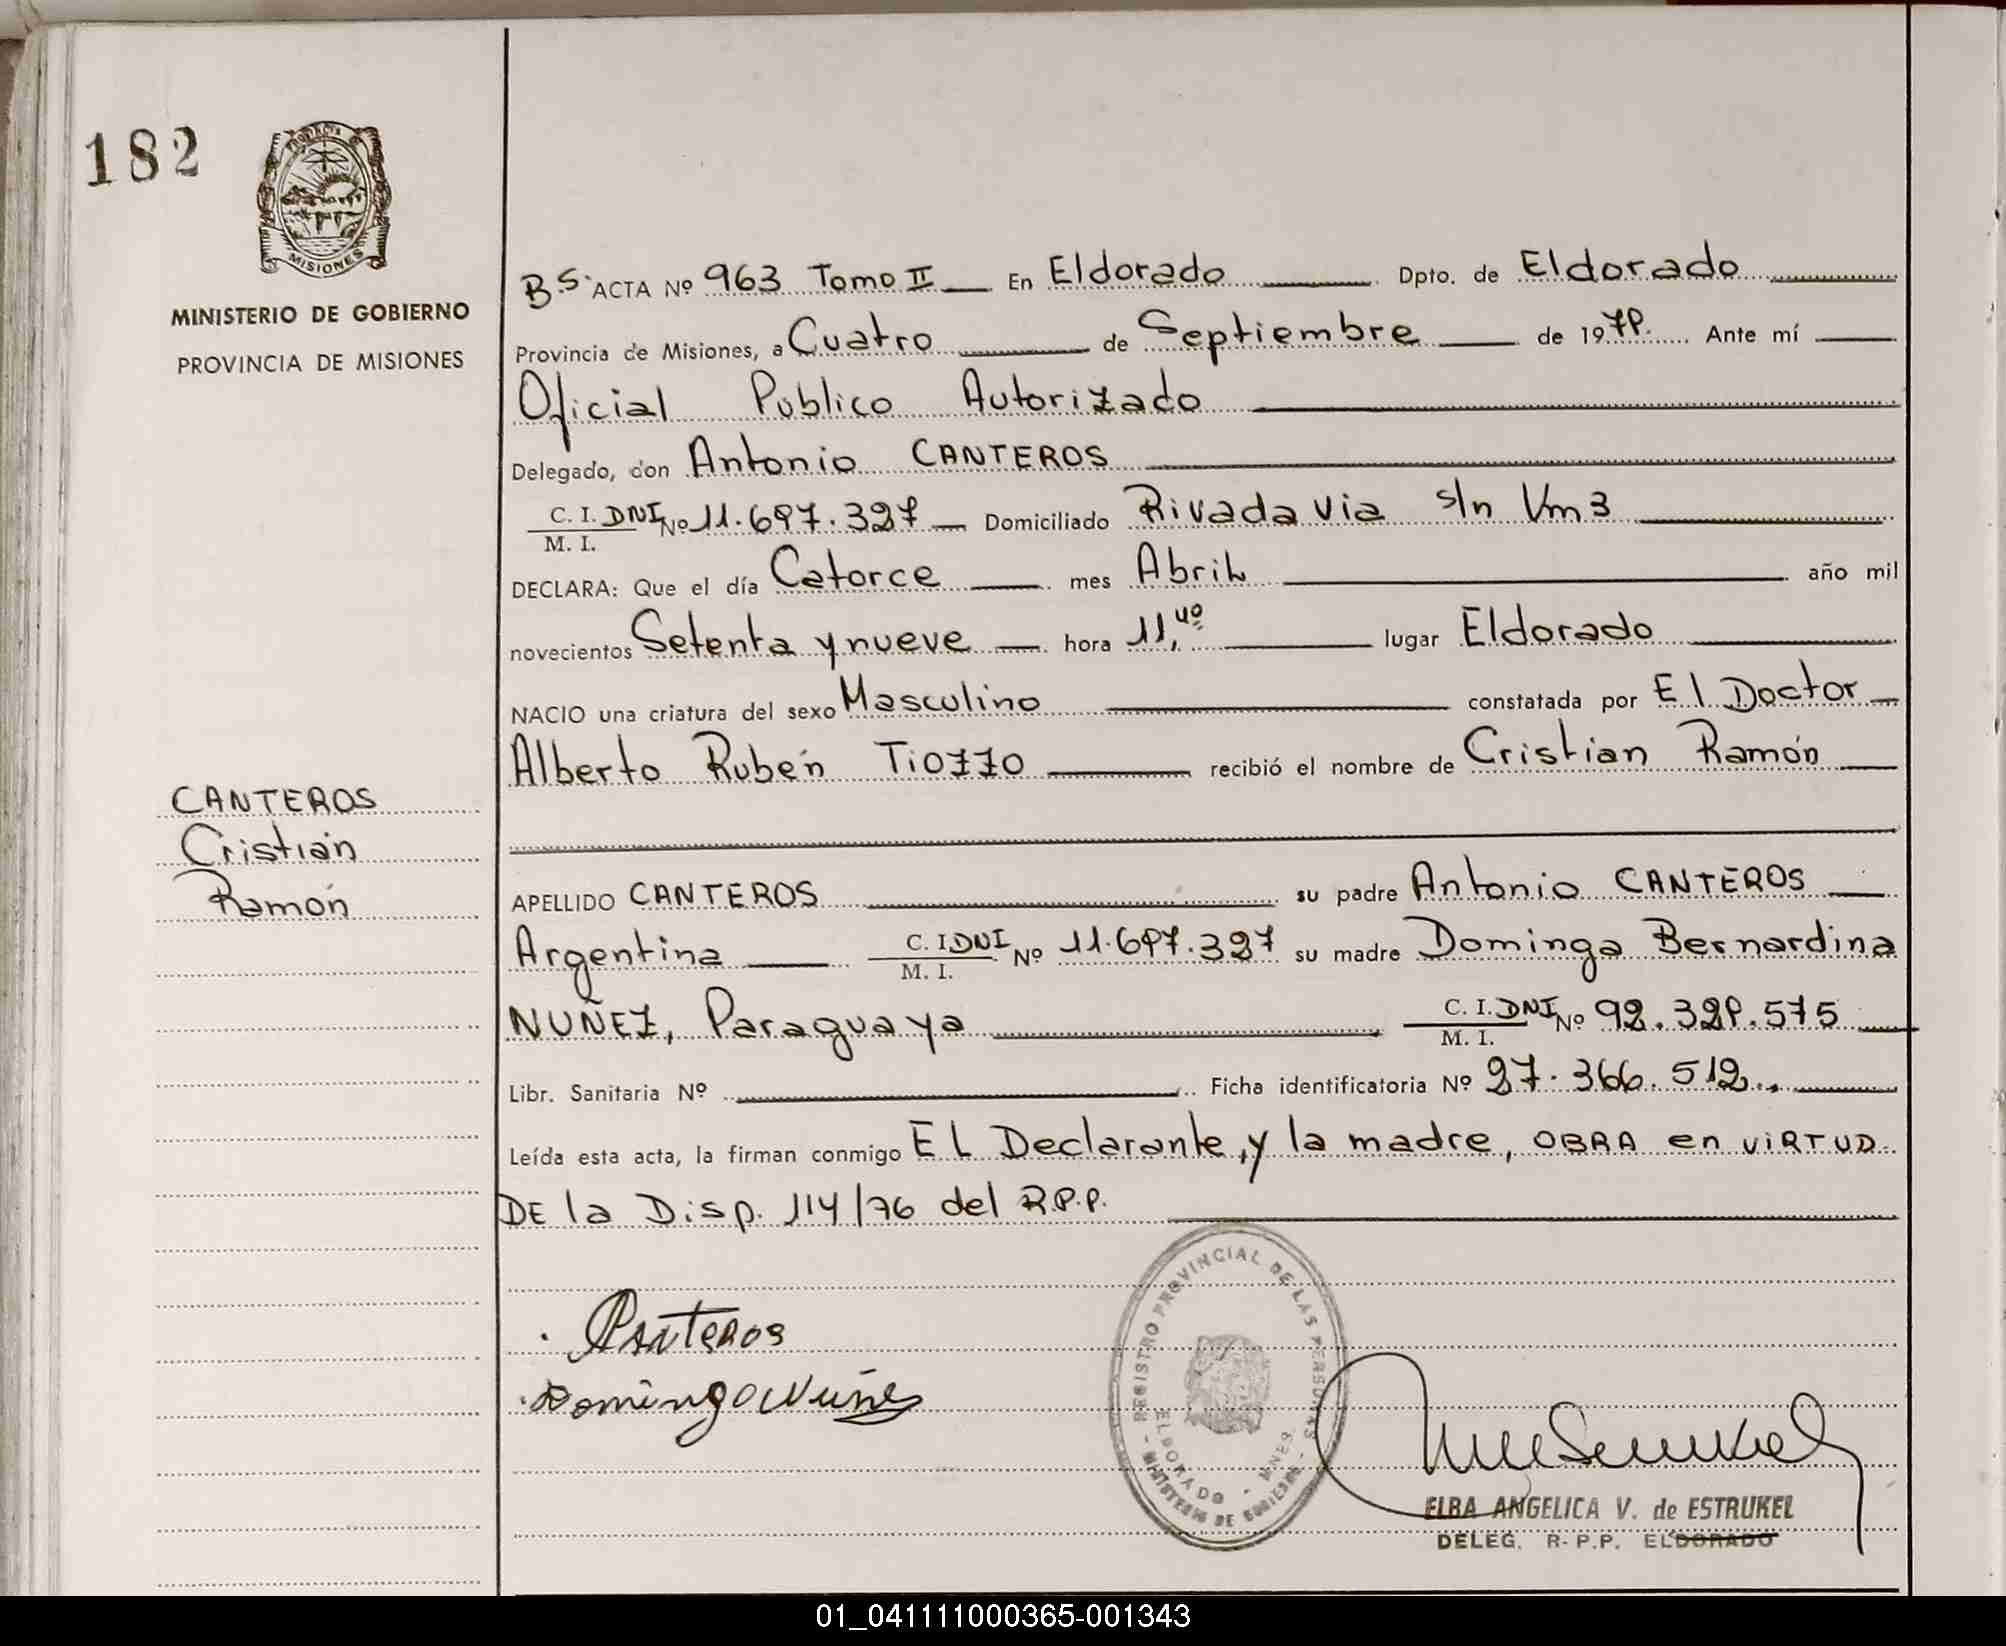 182
MISIONES
MINISTERIO DE GOBIERNO
PROVINCIA DE MISIONES
CANTEROS
Cristian
Ramón
B.S. ACTA Nº 963 Tomo II En Eldorado Dpto. de Eldorado
Provincia de Misiones, a Cuatro de Septiembre de 1979. Ante mí
Oficial Publico Autorizado
Delegado, don Antonio CANTEROS
C. I. DNI Nº 11.697.327 Domiciliado Rivadavia s/n Km3
M. I.
DECLARA: Que el día Catorce mes Abril año mil
novecientos Setenta y nueve hora 11,40 lugar Eldorado
NACIO una criatura del sexo Masculino constatada por El Doctor
Alberto Rubén Tiozzo recibió el nombre de Cristian Ramón
APELLIDO CANTEROS su padre Antonio CANTEROS
Argentina C. I. DNI Nº 11.697.327 su madre Dominga Bernardina
M. I.
NUÑEZ, Paraguaya C. I. DNI Nº 92.329.575
M. I.
Libr. Sanitaria Nº Ficha identificatoria Nº 27.366.512..
Leída esta acta, la firman conmigo El Declarante, y la madre, OBRA en VIRTUD
DE la Disp. 114/76 del R.P.P.
Canteros
Dominga Nuñes
REGISTRO PROVINCIAL DE LAS PERSONAS
ELDORADO - MNES.
- MINISTERIO DE GOBIERNO -
ELBA ANGELICA V. de ESTRUKEL
DELEG. R. P.P. ELDORADO
01_041111000365-001343